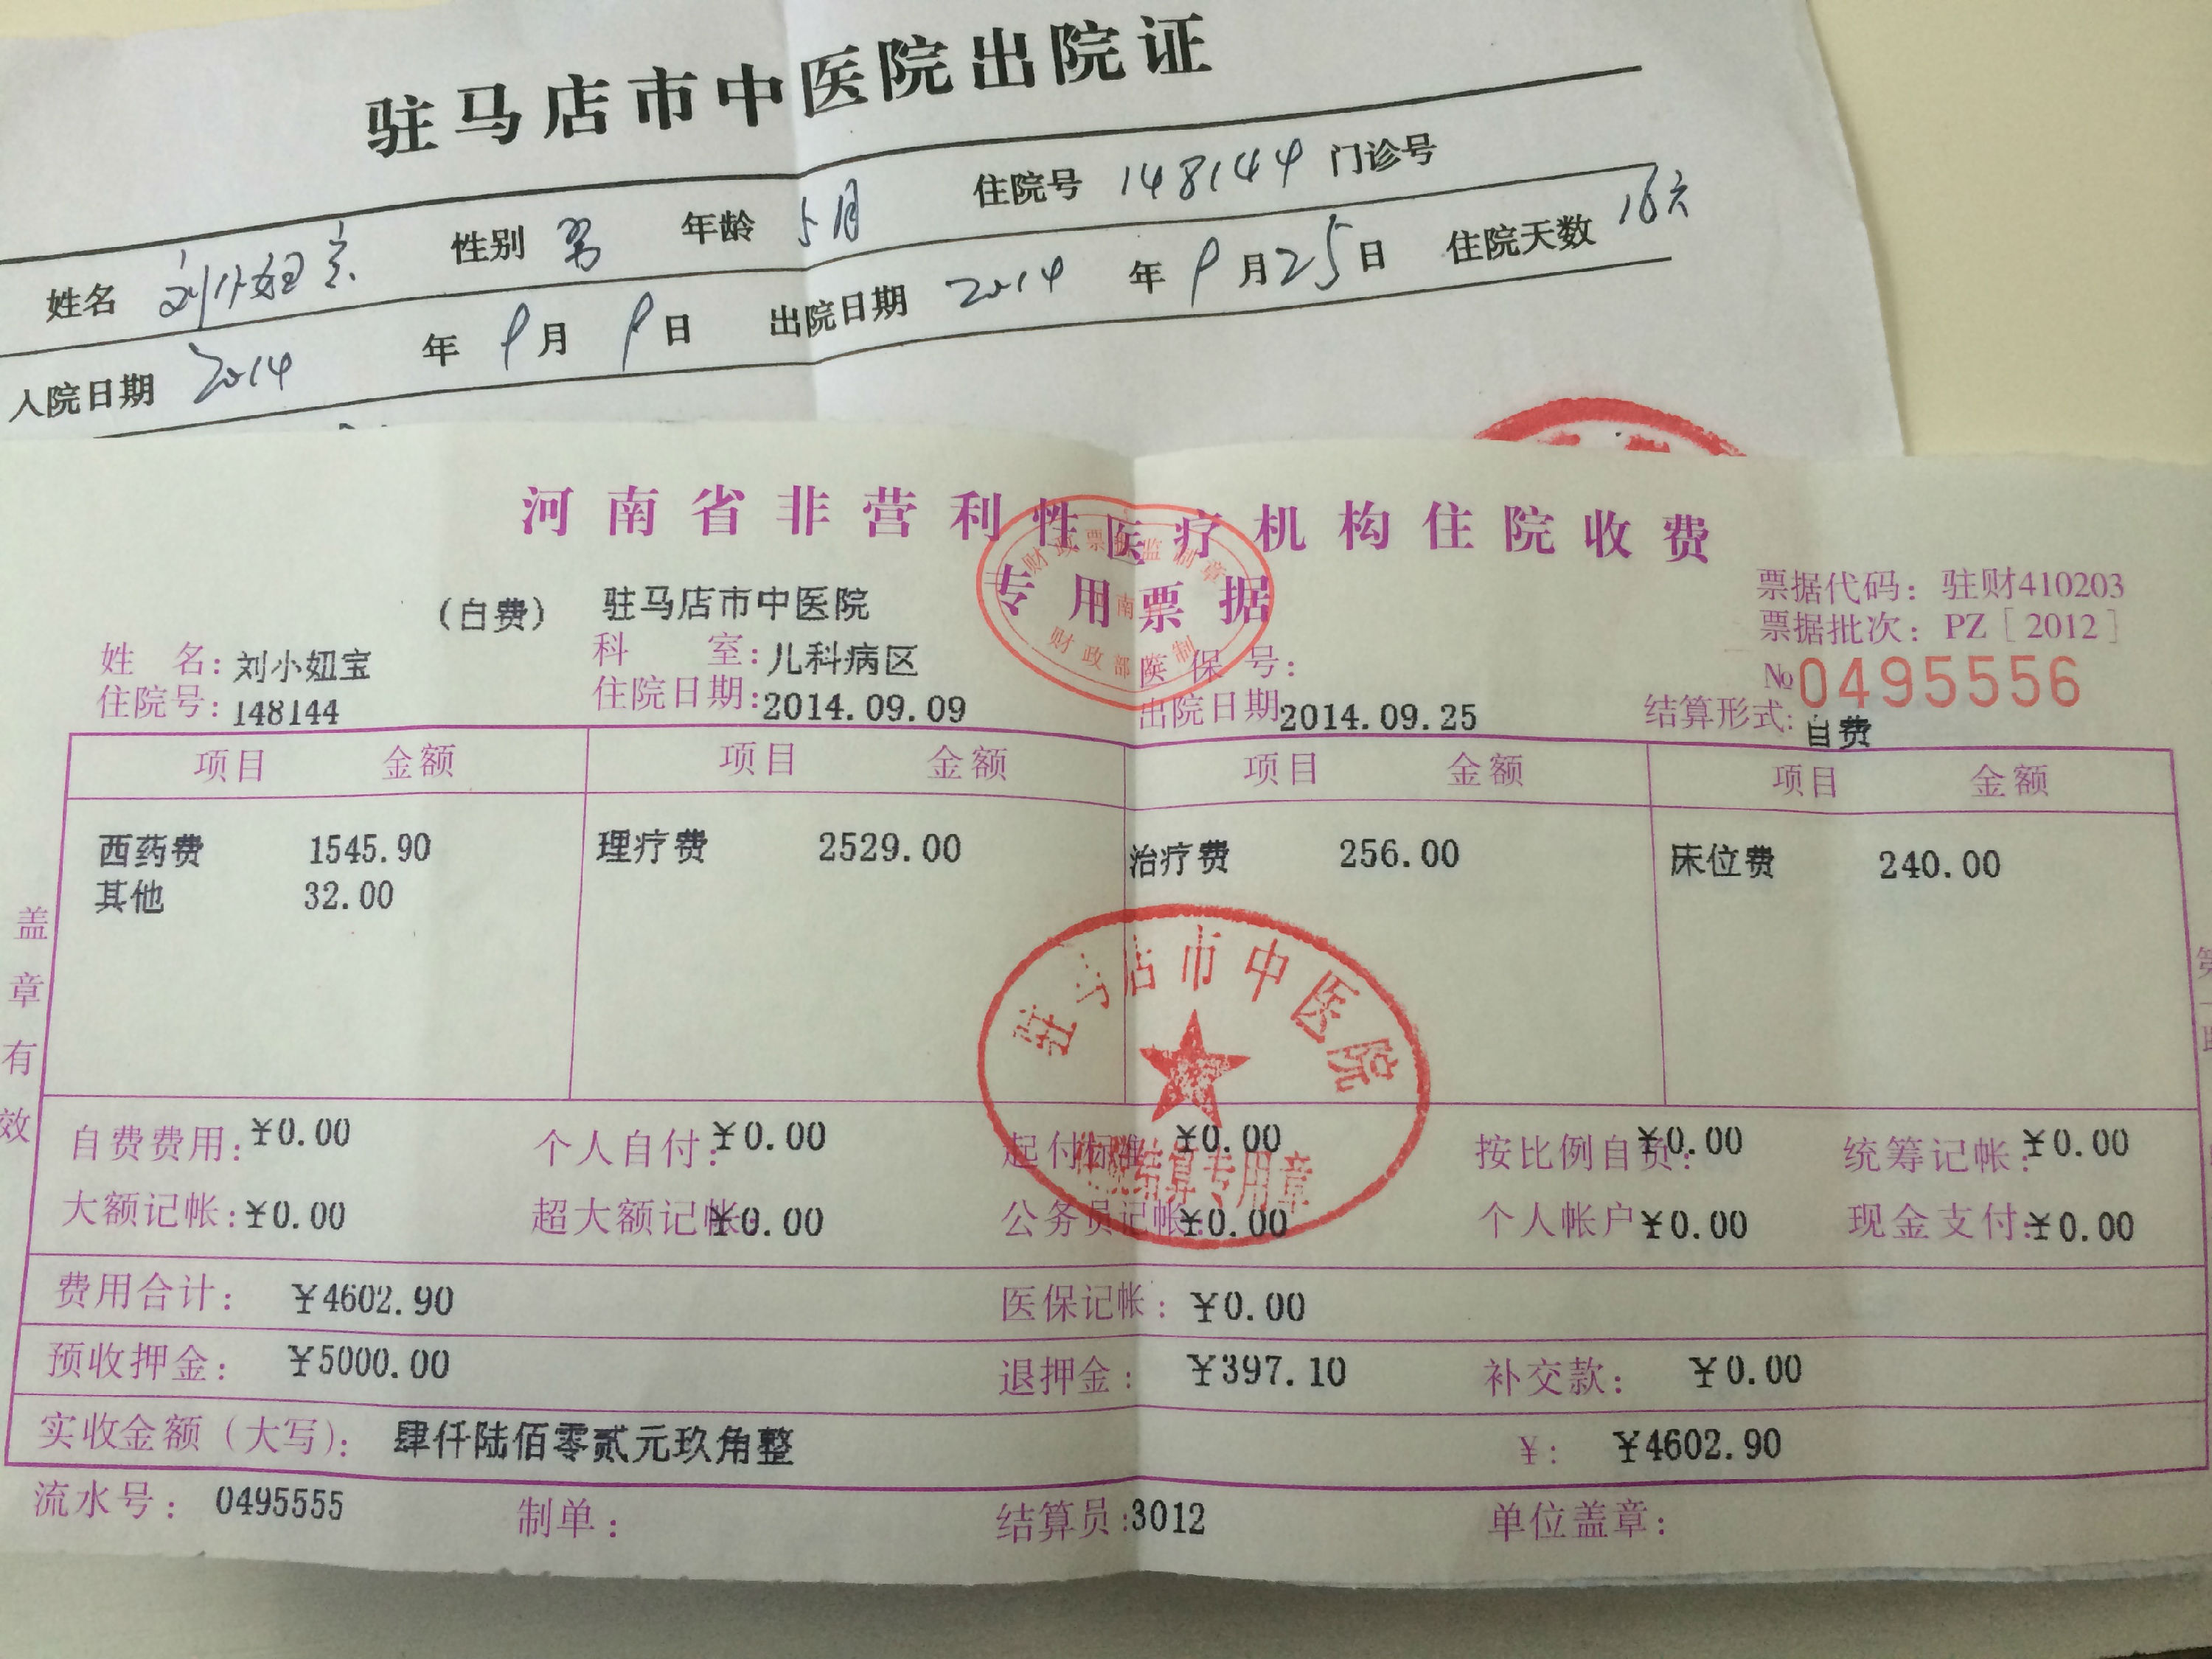 驻马店市中医院出院证
姓名 刘小妞宝 性别 男 年龄 5月 住院号 148144 门诊号
入院日期 2014 年 9 月 9 日 出院日期 2014 年 9 月 25 日 住院天数 16天
河南省非营利性医疗机构住院收费
专用票据
财政票据监制章
财政部监制
(自费) 驻马店市中医院
票据代码: 驻财410203
票据批次: PZ [ 2012 ]
№ 0495556
姓 名: 刘小妞宝 科 室: 儿科病区 医保号:
住院号: 148144 住院日期: 2014.09.09 出院日期 2014.09.25 结算形式: 自费
项目 金额 项目 金额 项目 金额 项目 金额
西药费 1545.90 理疗费 2529.00 治疗费 256.00 床位费 240.00
其他 32.00
盖章有效
驻马店市中医院
住院结算专用章
自费费用: ¥0.00 个人自付: ¥0.00 起付标准 ¥0.00 按比例自负: ¥0.00 统筹记帐: ¥0.00
大额记帐: ¥0.00 超大额记帐: ¥0.00 公务员记帐: ¥0.00 个人帐户 ¥0.00 现金支付: ¥0.00
费用合计: ¥4602.90 医保记帐: ¥0.00
预收押金: ¥5000.00 退押金: ¥397.10 补交款: ¥0.00
实收金额 (大写): 肆仟陆佰零贰元玖角整 ¥: ¥4602.90
流水号: 0495555 制单: 结算员: 3012 单位盖章: